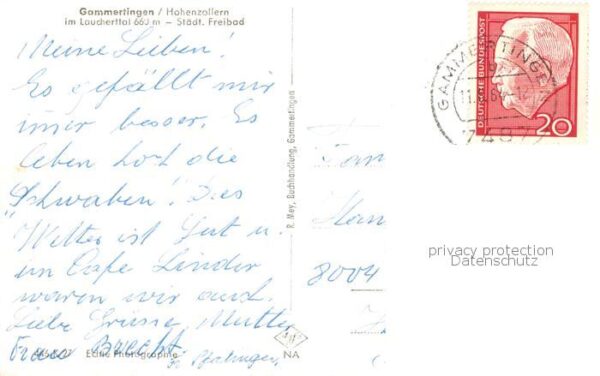 Gammertingen / Hohenzollern
im Laucherttal 663 m – Städt. Freibad
Meine Lieben!
Es gefällt mir
imer besser. Es
leben hoch die
"Schwaben! Das
Wetter ist Gut u.
im Cafe Linder
waren wir auch.
Liebe Grüsse, Mutter
Frau Brecht
Echte Photographie
R. Mey, Buchhandlung, Gammertingen
NA
Fam
8004
GAMMERTINGE
DEUTSCHE BUNDESPOST
20
privacy protection
Datenschutz